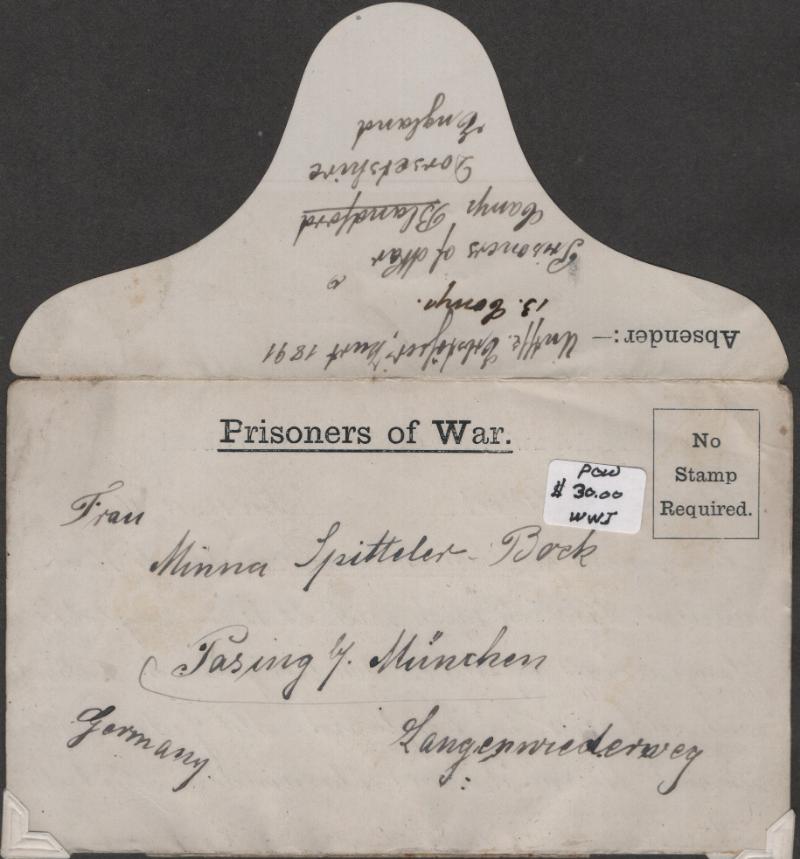 Absender:—
1891
13. Comp.
Prisoners of War
Camp Blandford
Dorsetshire
England
Prisoners of War.
No
Stamp
Required.
POW
$ 30.00
WWI
Frau
Minna Spitteler-Bock
Pasing b/. München
Langenwiederweg
Germany